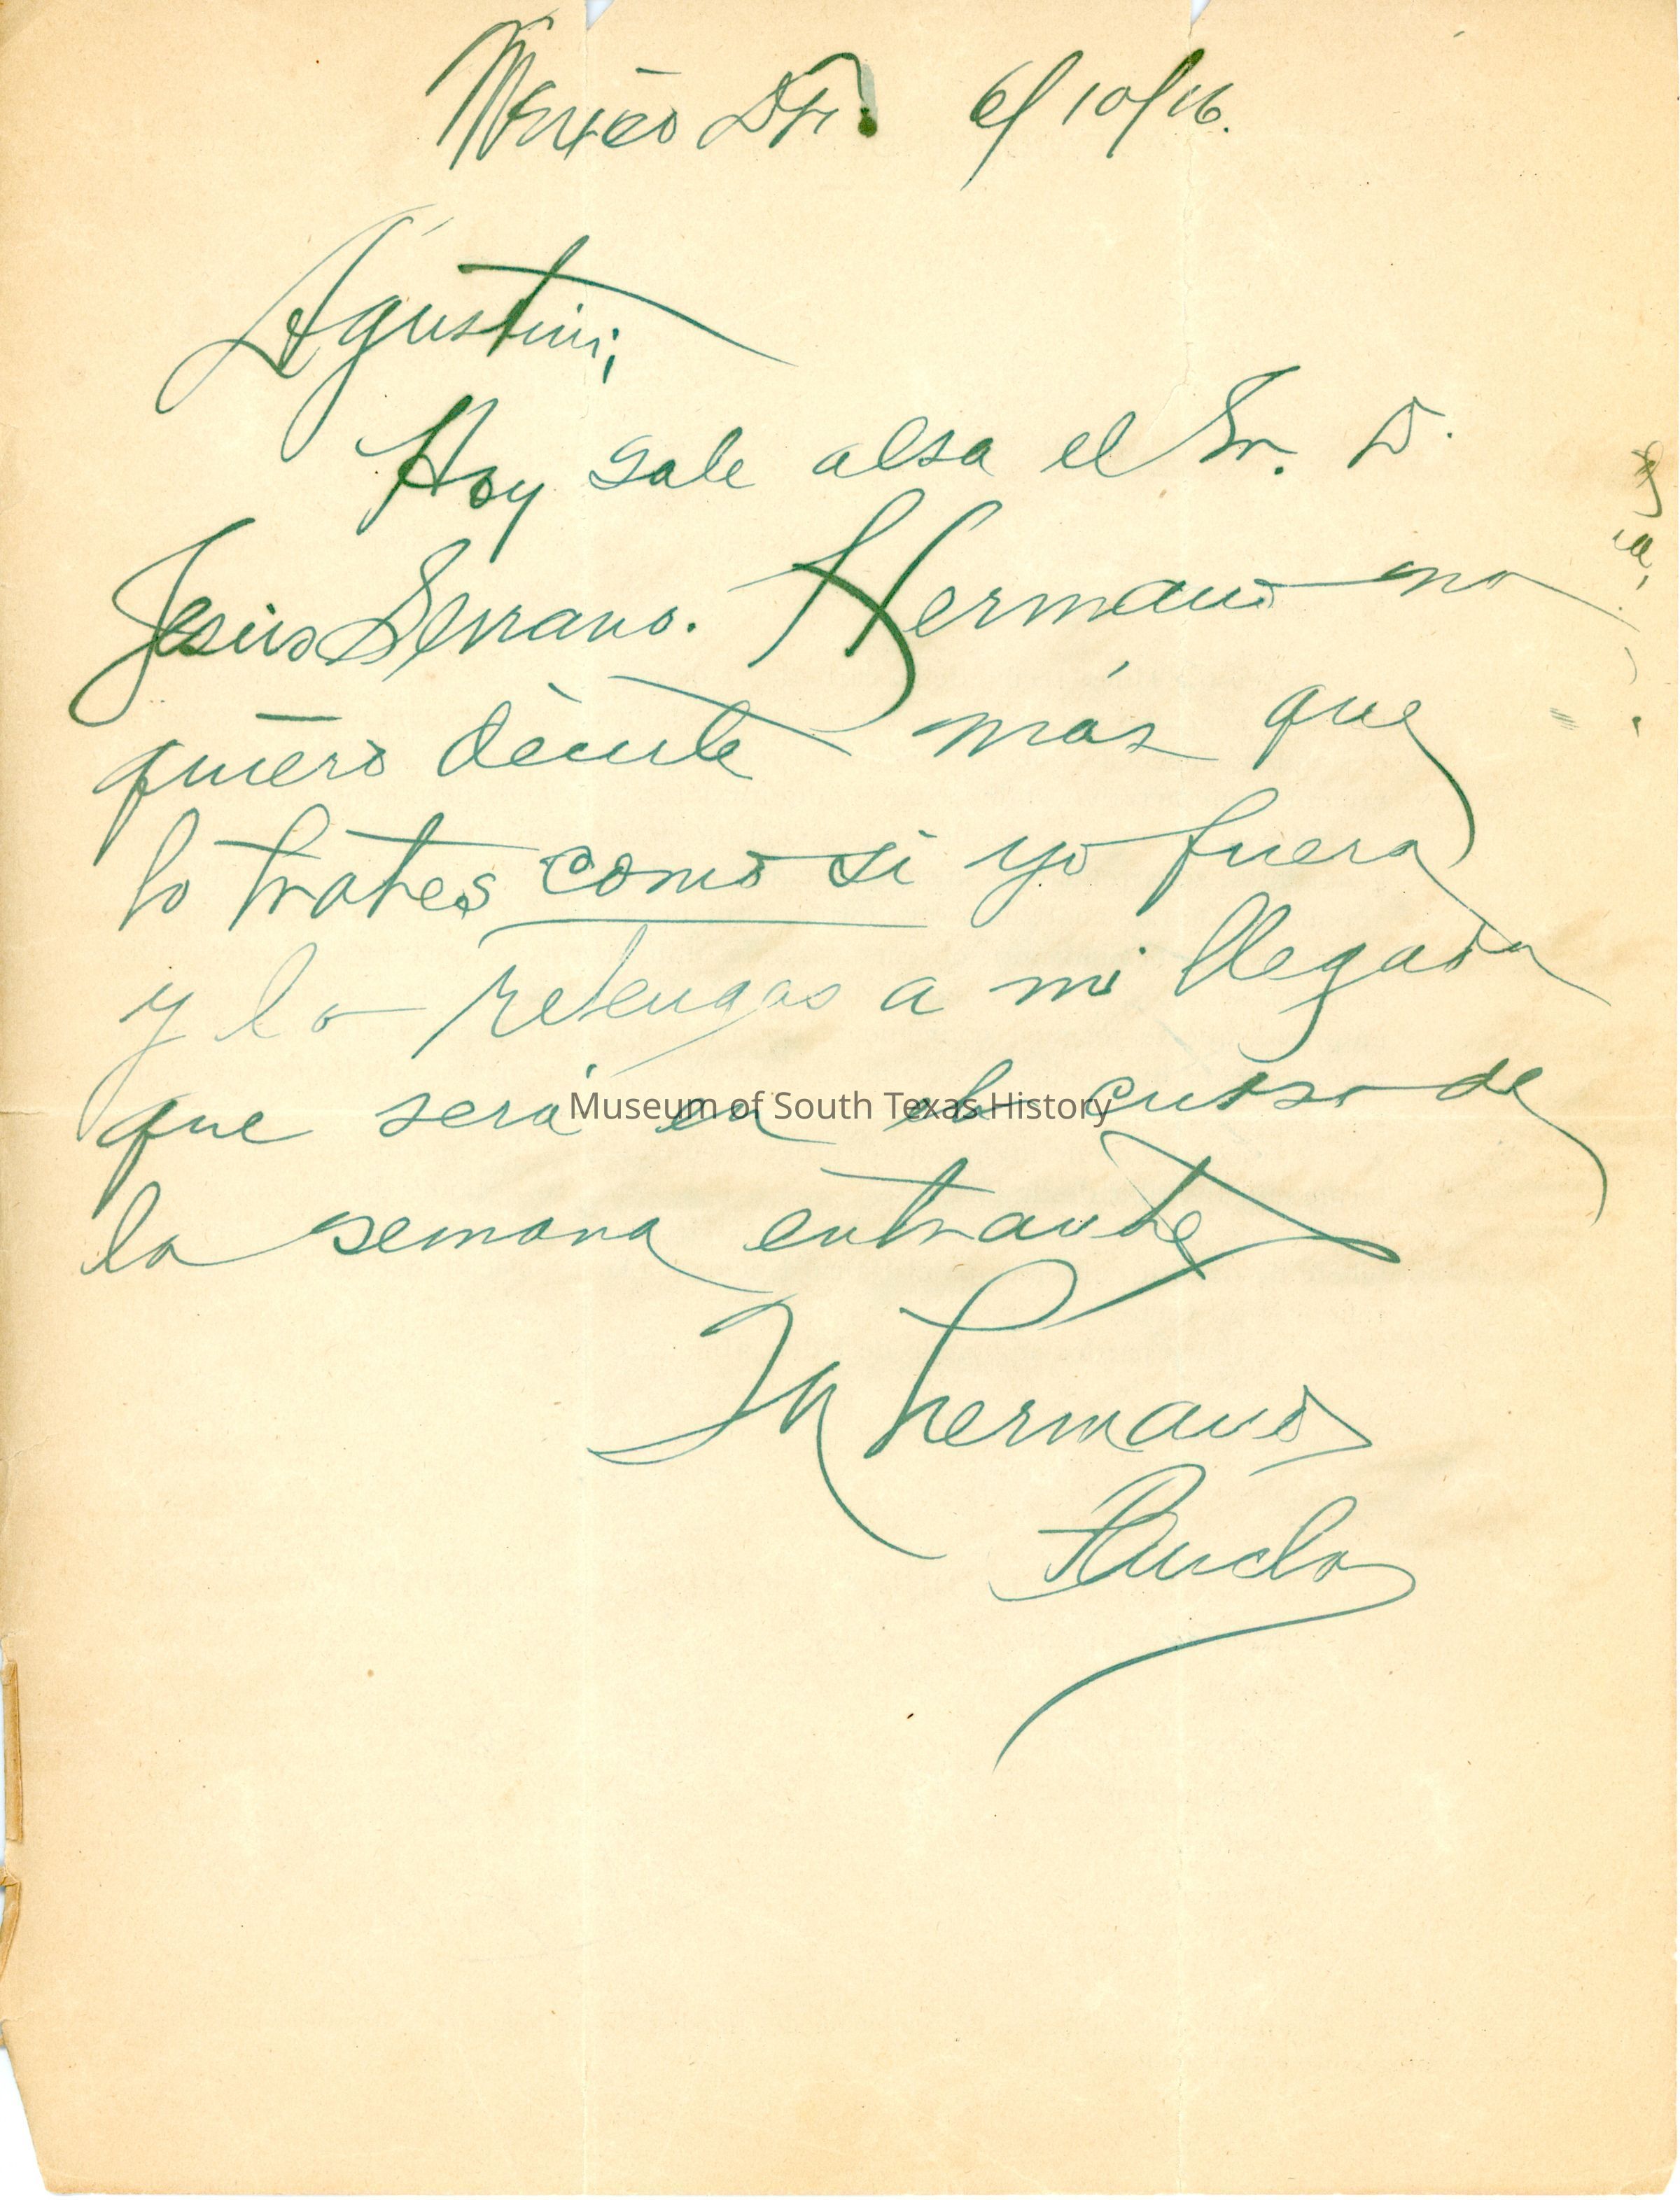 México D.F. 6/10/16.
Agustin;
Hoy sale alsa el Sr. D.
Jesús Serrano. Hermano no
quiero decirte más que
lo trates como si yo fuera
y lo retengas a mi llegada
que será en el curso de
Museum of South Texas History
la semana entrante
Tu hermano